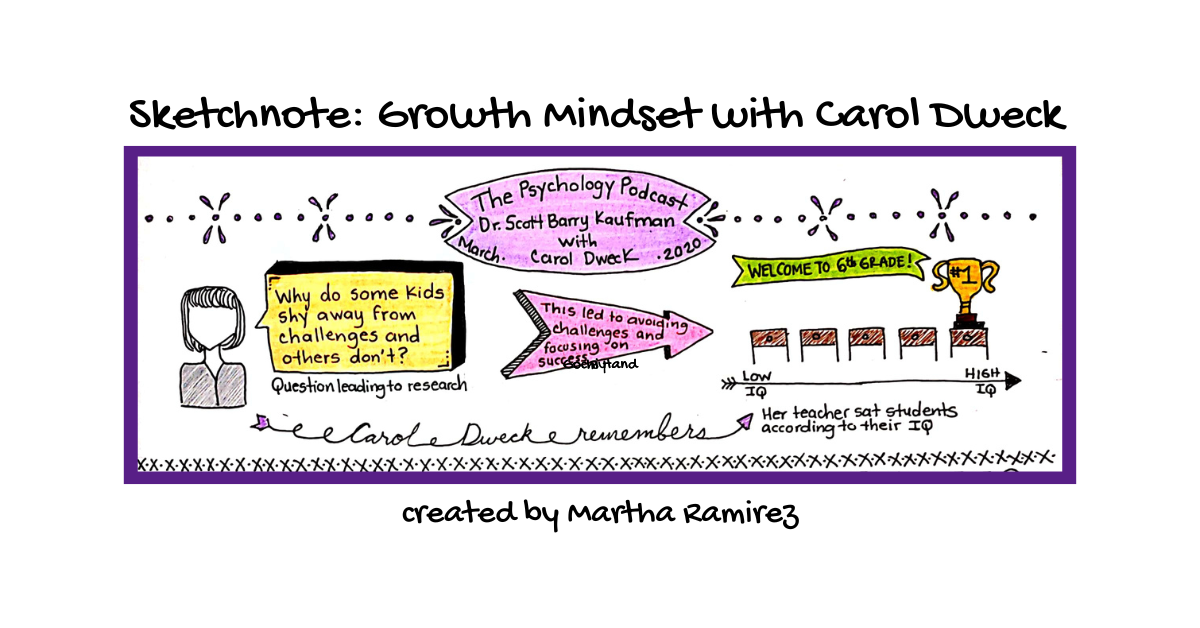 Sketchnote: Growth Mindset with Carol Dweck
The Psychology Podcast
Dr. Scott Barry Kaufman
with
March. Carol Dweck .2020
WELCOME TO 6th GRADE!
#1
Why do some kids
shy away from
challenges and
others don't?
Question leading to research
This led to avoiding
challenges and
focusing on
success
LOW
IQ
HIGH
IQ
Her teacher sat students
according to their IQ
Carol Dweck remembers
created by Martha Ramirez